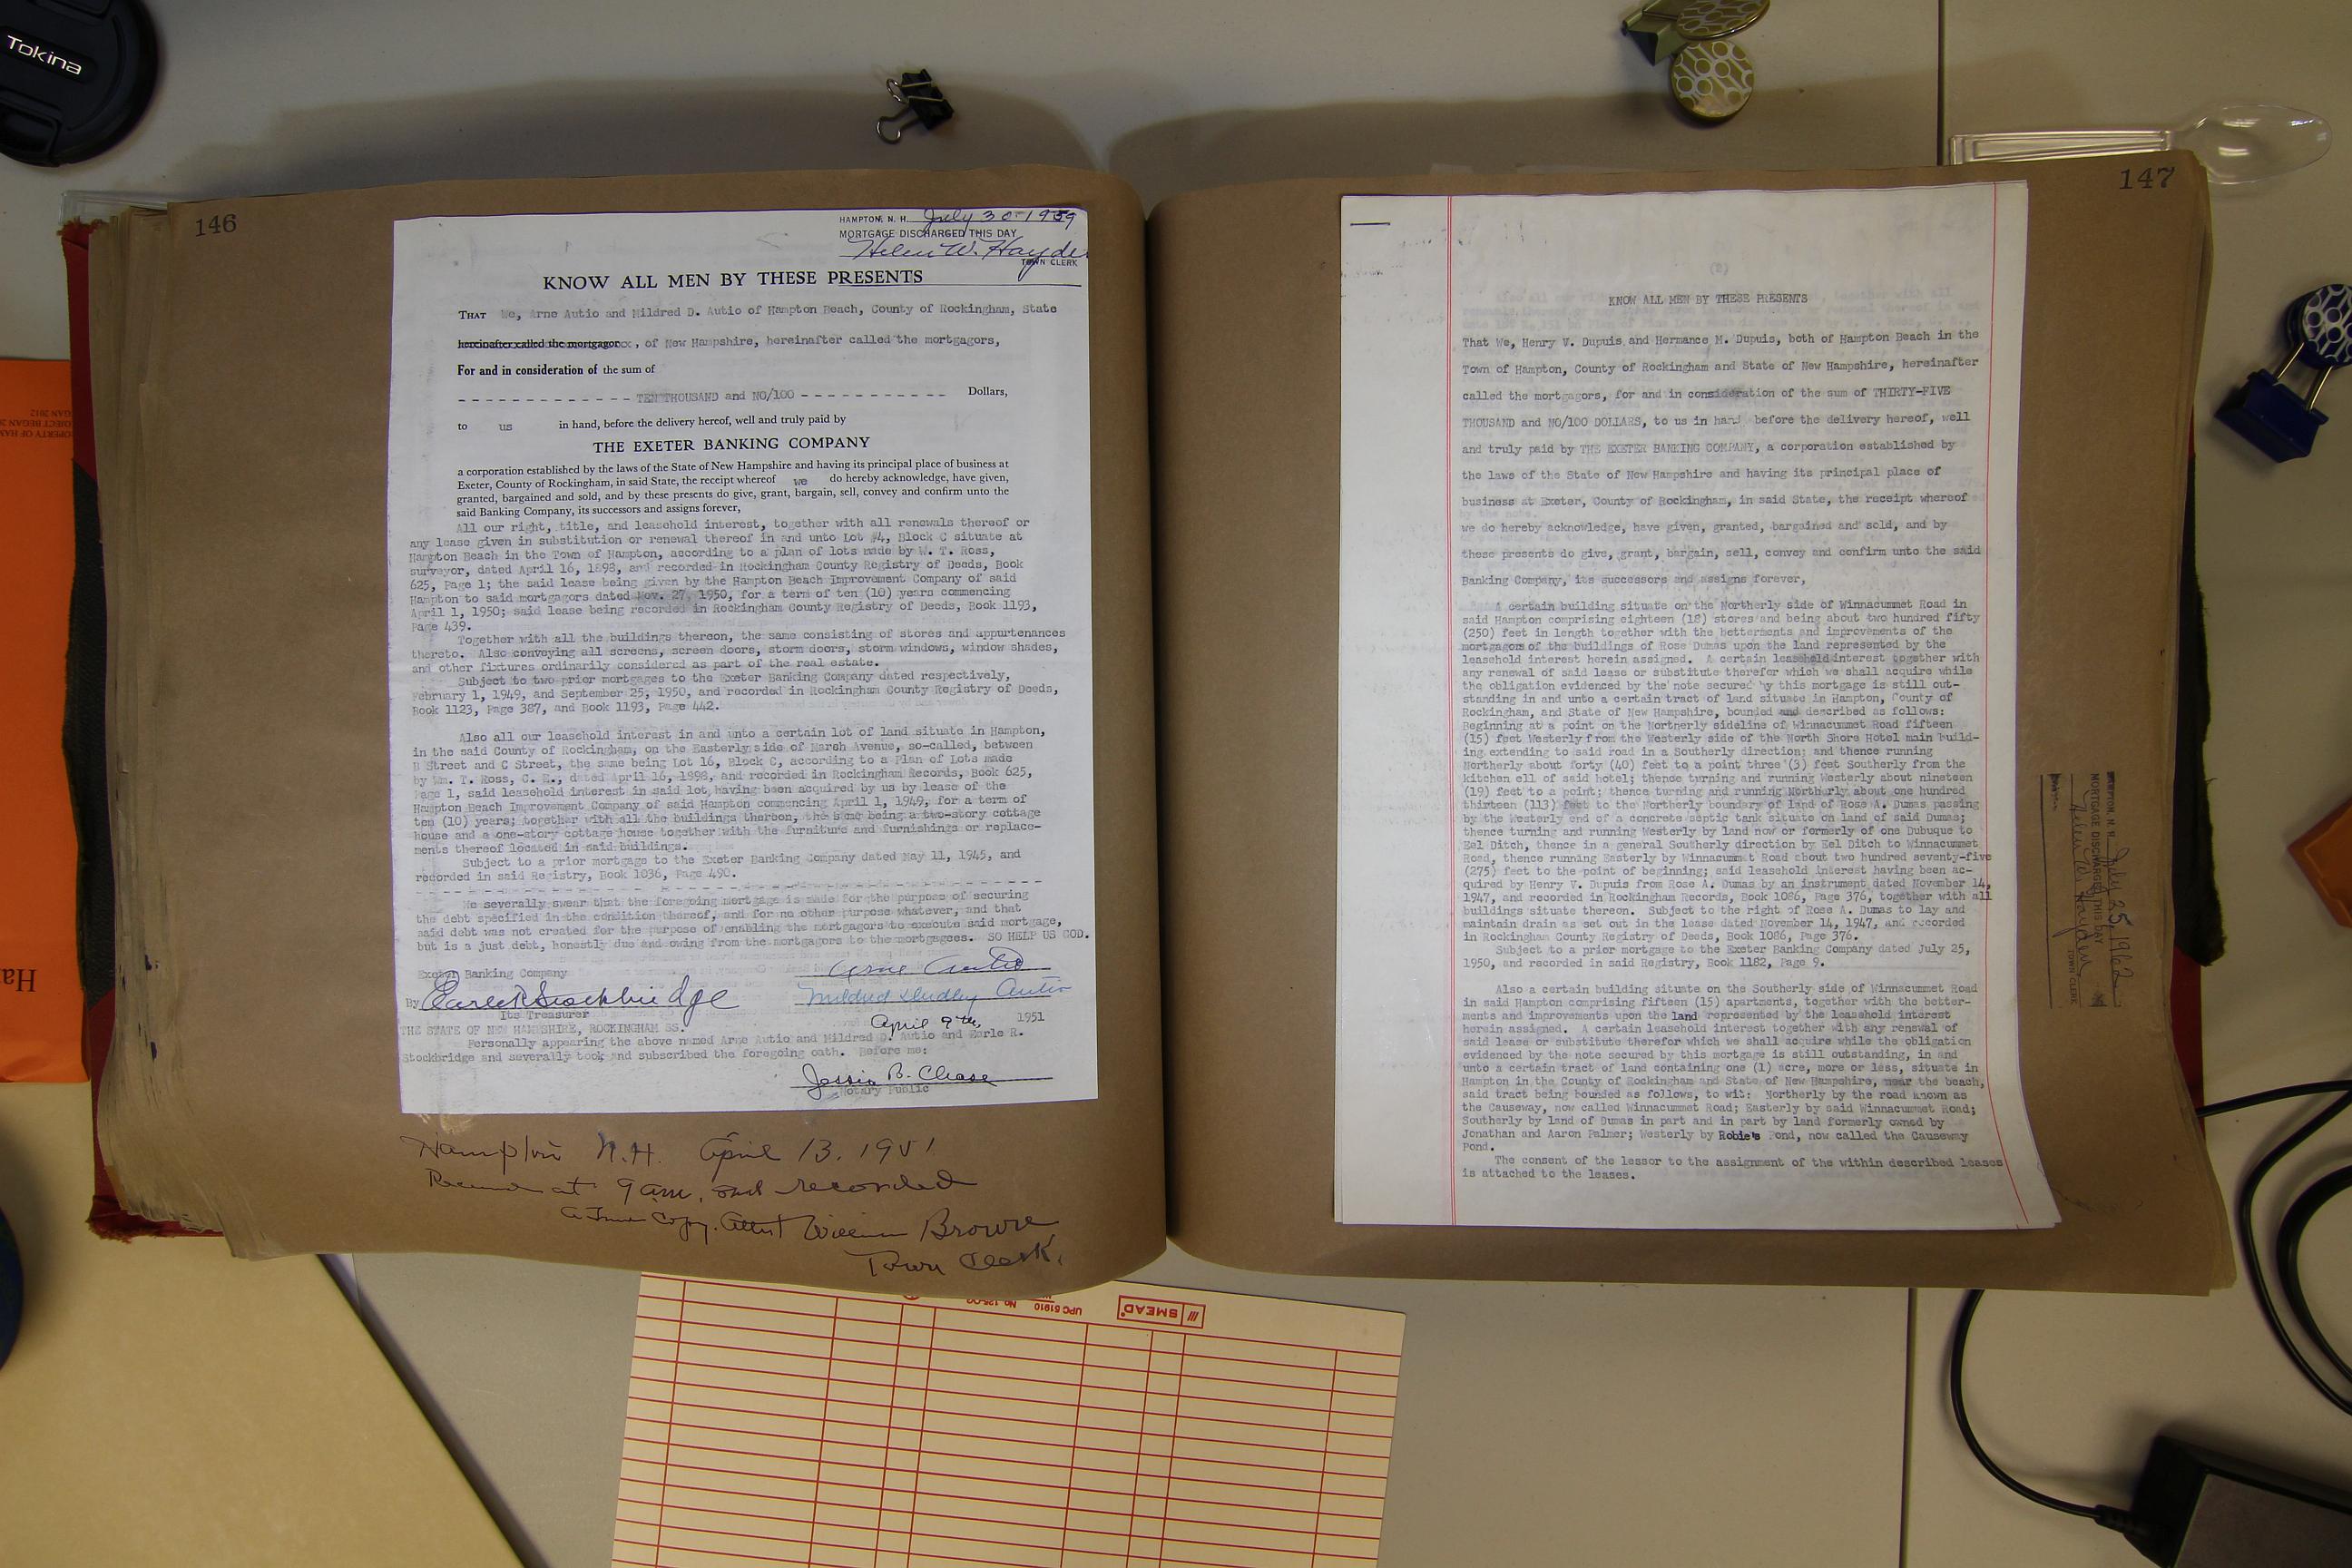 Tokina
146
HAMPTON, N. H. July 30 1959
MORTGAGE DISCHARGED THIS DAY
Helen W. Hayden
TOWN CLERK
KNOW ALL MEN BY THESE PRESENTS
THAT We, Arne Autio and Mildred D. Autio of Hampton Beach, County of Rockingham, State
hereinafter called the mortgagor xx, of New Hampshire, hereinafter called the mortgagors,
For and in consideration of the sum of
- - - - - - - - - - - - - TEN THOUSAND and NO/100 - - - - - - - - - - - Dollars,
to us in hand, before the delivery hereof, well and truly paid by
THE EXETER BANKING COMPANY
a corporation established by the laws of the State of New Hampshire and having its principal place of business at
Exeter, County of Rockingham, in said State, the receipt whereof we do hereby acknowledge, have given,
granted, bargained and sold, and by these presents do give, grant, bargain, sell, convey and confirm unto the
said Banking Company, its successors and assigns forever,
All our right, title, and leasehold interest, together with all renewals thereof or
any lease given in substitution or renewal thereof in and unto Lot #4, Block C situate at
Hampton Beach in the Town of Hampton, according to a plan of lots made by W. T. Ross,
surveyor, dated April 16, 1898, and recorded in Rockingham County Registry of Deeds, Book
625, Page 1; the said lease being given by the Hampton Beach Improvement Company of said
Hampton to said mortgagors dated Nov. 27, 1950, for a term of ten (10) years commencing
April 1, 1950; said lease being recorded in Rockingham County Registry of Deeds, Book 1193,
Page 439.
Together with all the buildings thereon, the same consisting of stores and appurtenances
thereto. Also conveying all screens, screen doors, storm doors, storm windows, window shades,
and other fixtures ordinarily considered as part of the real estate.
Subject to two prior mortgages to the Exeter Banking Company dated respectively,
February 1, 1949, and September 25, 1950, and recorded in Rockingham County Registry of Deeds,
Book 1123, Page 387, and Book 1193, Page 442.
Also all our leasehold interest in and unto a certain lot of land situate in Hampton,
in the said County of Rockingham, on the Easterly side of Marsh Avenue, so-called, between
B Street and C Street, the same being Lot 16, Block C, according to a Plan of Lots made
by Wm. T. Ross, C. E., dated April 16, 1898, and recorded in Rockingham Records, Book 625,
Page 1, said leasehold interest in said lot, having been acquired by us by lease of the
Hampton Beach Improvement Company of said Hampton commencing April 1, 1949, for a term of
ten (10) years; together with all the buildings thereon, the same being a two-story cottage
house and a one-story cottage house together with the furniture and furnishings or replace-
ments thereof located in said buildings.
Subject to a prior mortgage to the Exeter Banking Company dated May 11, 1945, and
recorded in said Registry, Book 1036, Page 490.
We severally swear that the foregoing mortgage is made for the purpose of securing
the debt specified in the condition thereof, and for no other purpose whatever, and that
said debt was not created for the purpose of enabling the mortgagors to execute said mortgage,
but is a just debt, honestly due and owing from the mortgagors to the mortgagees. SO HELP US GOD.
Exeter Banking Company Arne Autio
By Earle R Stockbridge Mildred Dudley Autio
Its Treasurer
April 9th, 1951
THE STATE OF NEW HAMPSHIRE, ROCKINGHAM SS.
Personally appearing the above named Arne Autio and Mildred D. Autio and Earle R.
Stockbridge and severally took and subscribed the foregoing oath. Before me:
Jessie B. Chase
Notary Public
Hampton N.H. April 13, 1951
Received at 9 am, and recorded
a True Copy. Attest William Browne
Town Clerk.
147
KNOW ALL MEN BY THESE PRESENTS
(2)
That We, Henry V. Dupuis and Hermance M. Dupuis, both of Hampton Beach in the
Town of Hampton, County of Rockingham and State of New Hampshire, hereinafter
called the mortgagors, for and in consideration of the sum of THIRTY-FIVE
THOUSAND and NO/100 DOLLARS, to us in hand before the delivery hereof, well
and truly paid by THE EXETER BANKING COMPANY, a corporation established by
the laws of the State of New Hampshire and having its principal place of
business at Exeter, County of Rockingham, in said State, the receipt whereof
we do hereby acknowledge, have given, granted, bargained and sold, and by
these presents do give, grant, bargain, sell, convey and confirm unto the said
Banking Company, its successors and assigns forever,
A certain building situate on the Northerly side of Winnacummet Road in
said Hampton comprising eighteen (18) stores and being about two hundred fifty
(250) feet in length together with the betterments and improvements of the
mortgagors of the buildings of Rose Dumas upon the land represented by the
leasehold interest herein assigned. A certain leasehold interest together with
any renewal of said lease or substitute therefor which we shall acquire while
the obligation evidenced by the note secured by this mortgage is still out-
standing in and unto a certain tract of land situate in Hampton, County of
Rockingham, and State of New Hampshire, bounded and described as follows:
Beginning at a point on the Northerly sideline of Winnacummet Road fifteen
(15) feet Westerly from the Westerly side of the North Shore Hotel main build-
ing extending to said road in a Southerly direction; and thence running
Northerly about forty (40) feet to a point three (3) feet Southerly from the
kitchen ell of said hotel; thence turning and running Westerly about nineteen
(19) feet to a point; thence turning and running Northerly about one hundred
thirteen (113) feet to the Northerly boundary of land of Rose A. Dumas passing
by the Westerly end of a concrete septic tank situate on land of said Dumas;
thence turning and running Westerly by land now or formerly of one Dubuque to
Eel Ditch, thence in a general Southerly direction by Eel Ditch to Winnacummet
Road, thence running Easterly by Winnacummet Road about two hundred seventy-five
(275) feet to the point of beginning; said leasehold interest having been ac-
quired by Henry V. Dupuis from Rose A. Dumas by an instrument dated November 14,
1947, and recorded in Rockingham Records, Book 1086, Page 376, together with all
buildings situate thereon. Subject to the right of Rose A. Dumas to lay and
maintain drain as set out in the lease dated November 14, 1947, and recorded
in Rockingham County Registry of Deeds, Book 1086, Page 376.
Subject to a prior mortgage to the Exeter Banking Company dated July 25,
1950, and recorded in said Registry, Book 1182, Page 9.
Also a certain building situate on the Southerly side of Winnacummet Road
in said Hampton comprising fifteen (15) apartments, together with the better-
ments and improvements upon the land represented by the leasehold interest
herein assigned. A certain leasehold interest together with any renewal of
said lease or substitute therefor which we shall acquire while the obligation
evidenced by the note secured by this mortgage is still outstanding, in and
unto a certain tract of land containing one (1) acre, more or less, situate in
Hampton in the County of Rockingham and State of New Hampshire, near the beach,
said tract being bounded as follows, to wit: Northerly by the road known as
the Causeway, now called Winnacummet Road; Easterly by said Winnacummet Road;
Southerly by land of Dumas in part and in part by land formerly owned by
Jonathan and Aaron Palmer; Westerly by Robie's Pond, now called the Causeway
Pond.
The consent of the lessor to the assignment of the within described leases
is attached to the leases.
HAMPTON, N. H. July 25, 1962
MORTGAGE DISCHARGED THIS DAY
Helen W. Hayden
TOWN CLERK
SMEAD
UPC 51910